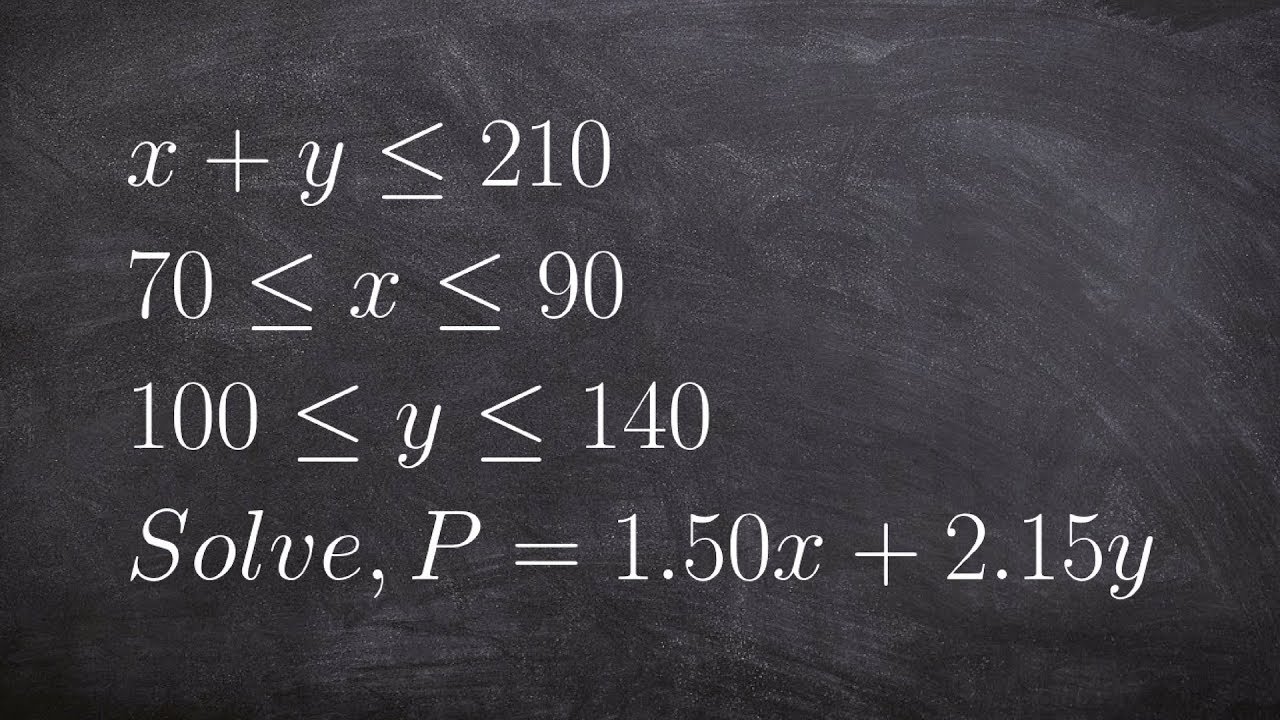 x + y ≤ 210
70 ≤ x ≤ 90
100 ≤ y ≤ 140
Solve, P = 1.50x + 2.15y